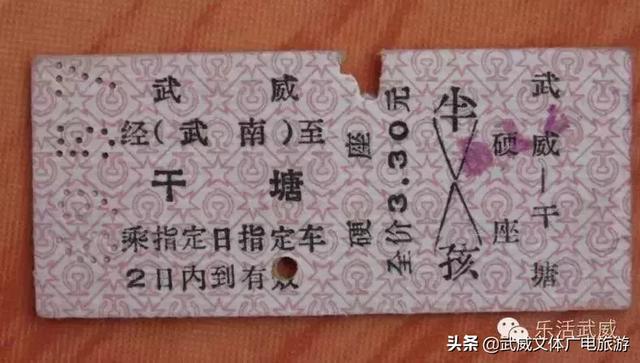 武威
经(武南)至
干塘
乘指定日指定车
2日内到有效
硬座
全价3.30元
半
孩
硬座
武威—干塘
乐活武威
头条 @武威文体广电旅游